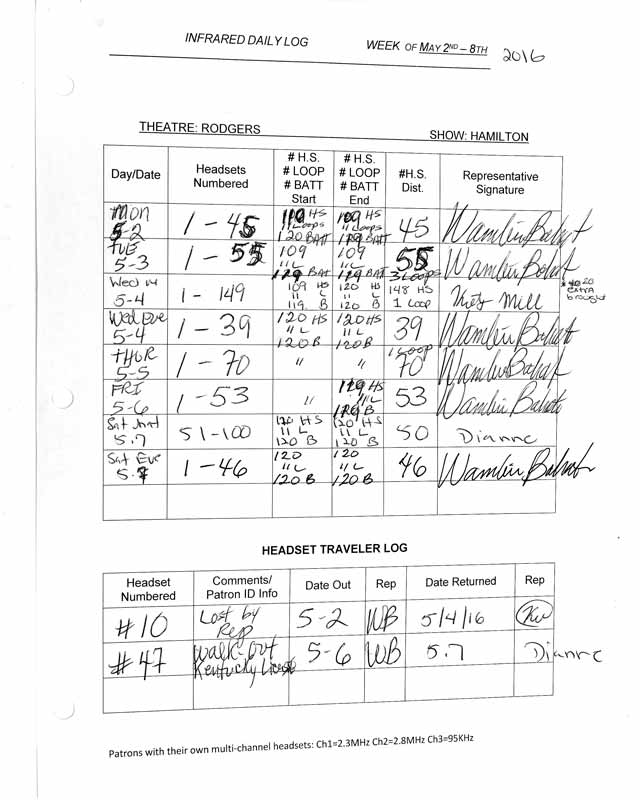 INFRARED DAILY LOG WEEK OF MAY 2ND – 8TH 2016
THEATRE: RODGERS
SHOW: HAMILTON
Day/Date Headsets Numbered # H.S. # LOOP # BATT Start # H.S. # LOOP # BATT End #H.S. Dist. Representative Signature
MON 5-2 1 - 45 119 HS 11 Loops 120 BATT 109 HS 11 Loops 45
TUE 5-3 1 - 55 109 11 L BAT 109 11 L BAT 55 3 Loops
Wed M 5-4 1 - 149 109 HS 11 L 119 B 120 HS 11 L 120 B 148 HS 1 Loop * 20 extra brought
Wed Eve 5-4 1 - 39 120 HS 11 L 120 B 120 HS 11 L 120 B 39
THUR 5-5 1 - 70 " " 1 Loop 70
FRI 5-6 1 - 53 " HS 11 L B 53
Sat Mat 5.7 51-100 120 HS 11 L 120 B 120 HS 11 L 120 B 50 Dianne
Sat Eve 5.7 1 - 46 120 11 L 120 B 120 11 L 120 B 46
HEADSET TRAVELER LOG
Headset Numbered Comments/ Patron ID Info Date Out Rep Date Returned Rep
#10 Lost by Rep 5-2 WB 5/4/16 KW
#47 Walk-Out Kentucky License 5-6 WB 5.7 Dianne
Patrons with their own multi-channel headsets: Ch1=2.3MHz Ch2=2.8MHz Ch3=95KHz